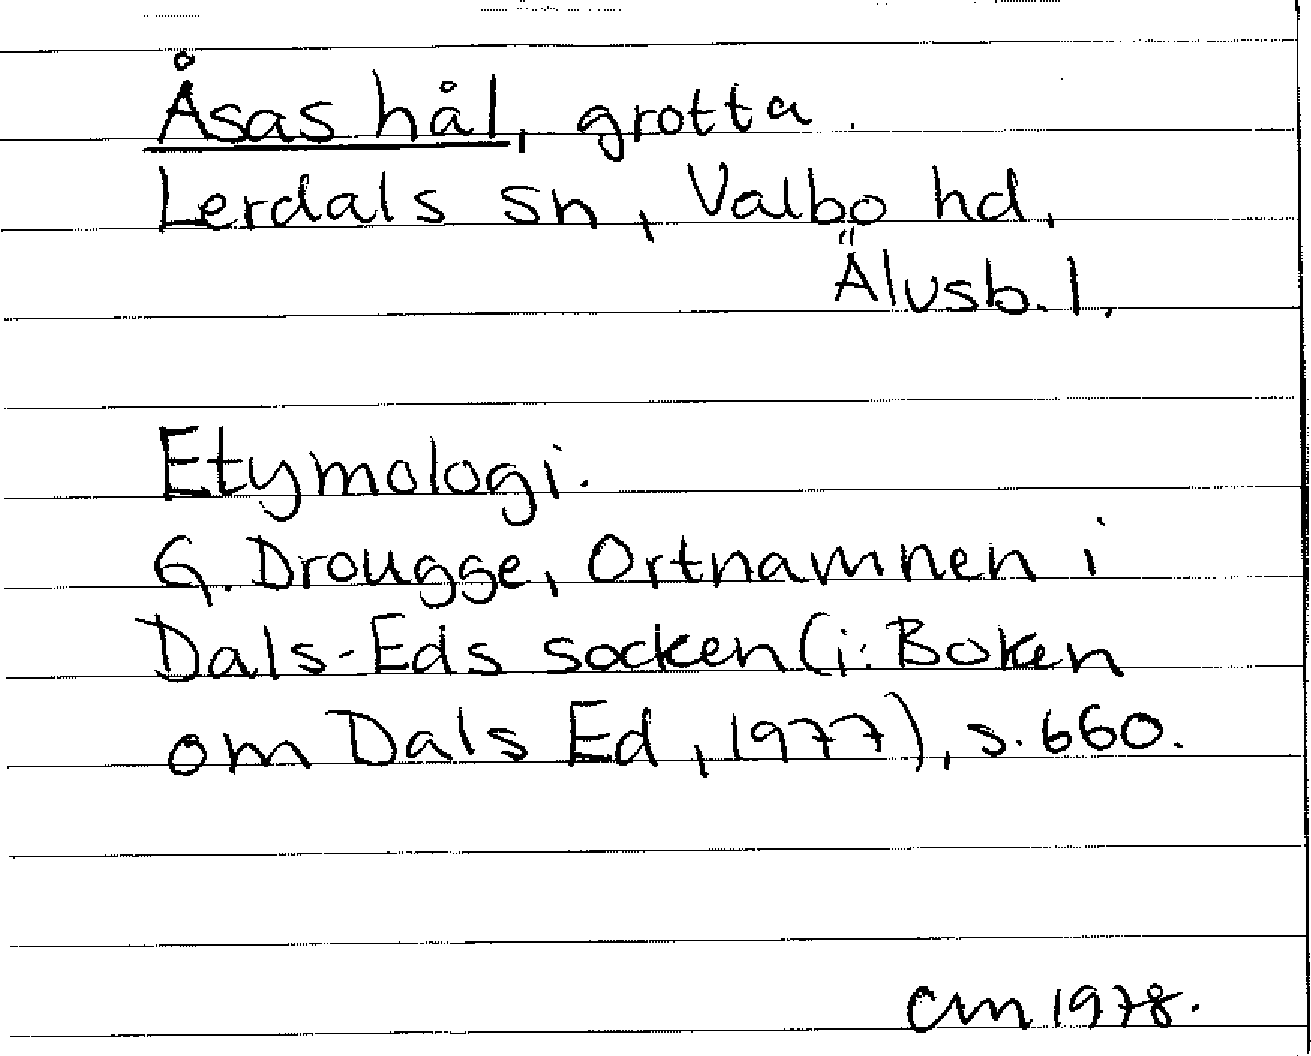 Åsas hål, grotta.
Lerdals sn, Valbo hd,
Älvsb. l.
Etymologi.
G. Drougge, Ortnamnen i
Dals-Eds socken (i: Boken
om Dals Ed, 1977), s. 660.
CM 1978.